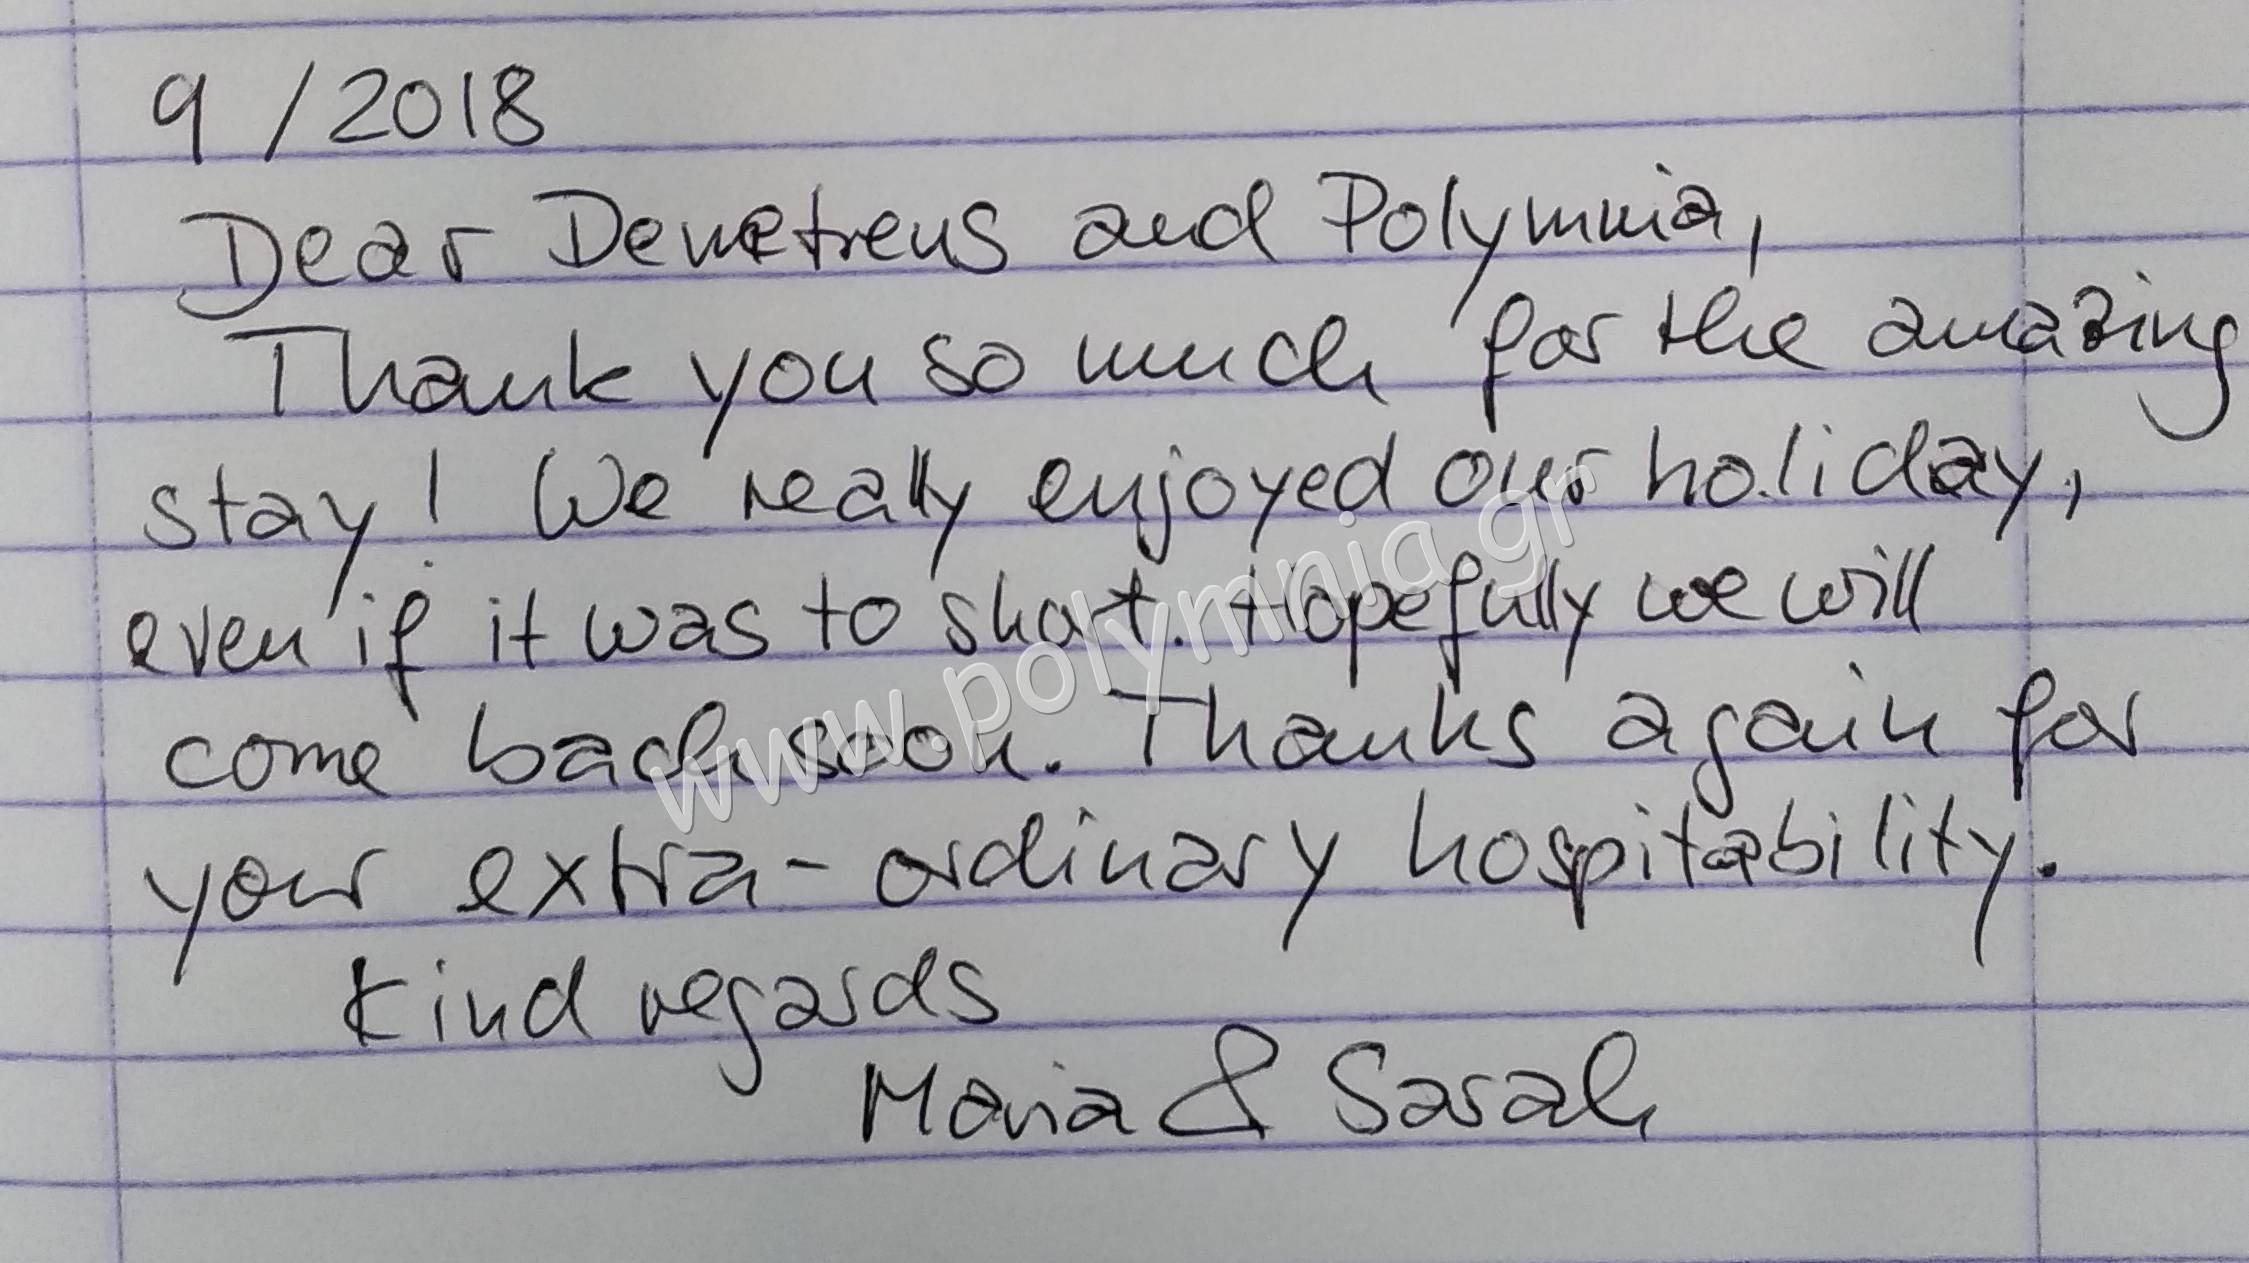 9 / 2018
Dear Demetreus and Polymnia,
Thank you so much for the amazing
stay! We really enjoyed our holiday,
even if it was to short. Hopefully we will
come back soon. Thanks again for
your extra-ordinary hospitability.
Kind regards
Maria & Sarah
www.polymnia.gr